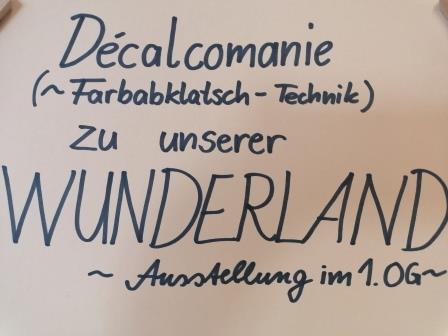 Décalcomanie
(~Farbabklatsch-Technik)
zu unserer
WUNDERLAND
~ Ausstellung im 1. OG~